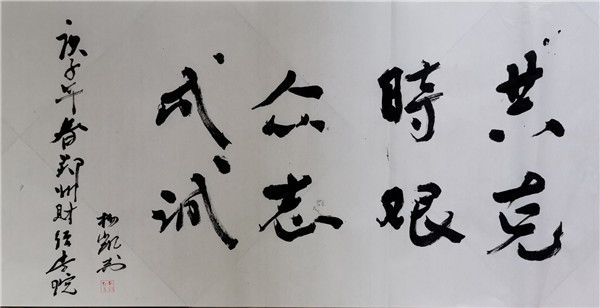 共克
時艰
众志
成城
庚子年春郑州财经学院
杨凯